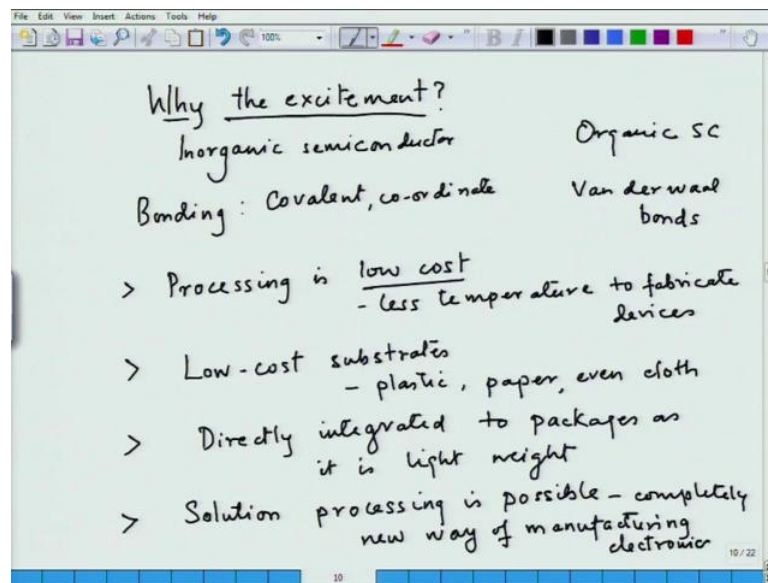 File Edit View Insert Actions Tools Help
100%
B I
Why the excitement?
Inorganic semiconductor Organic SC
Bonding : Covalent, co-ordinate Van der waal
bonds
> Processing is low cost
- less temperature to fabricate
devices
> Low-cost substrates
- plastic, paper, even cloth
> Directly integrated to packages as
it is light weight
> Solution processing is possible - completely
new way of manufacturing
electronics
10 / 22
10